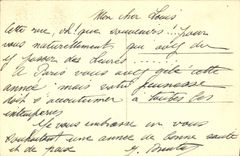 Mon cher Louis
Cette rue, oh! que souvenirs.... pour
vous naturellement, que avez du
y passer des heures......!
A Paris vous avez gelé cette
année; mais votre jeunesse
doit s'accoutumer à toutes les
intempéries
Je vous embrasse en vous
souhaitant une année de bonne santé
et de paix